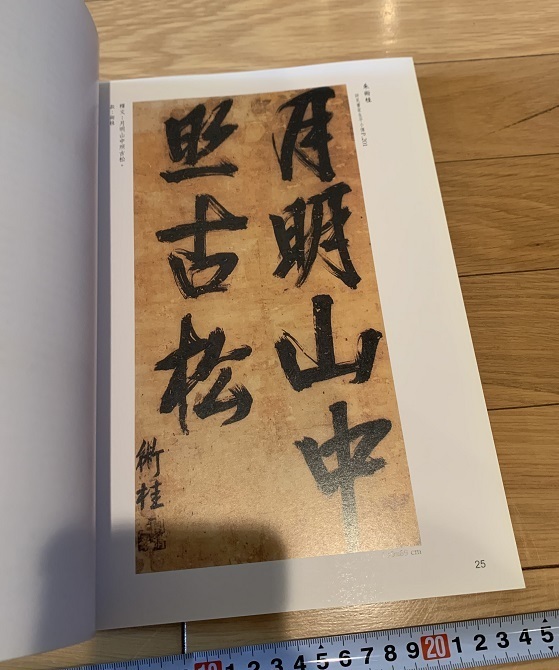 朱術桂
月明山中
照古松
術桂
釋文：月明山中照古松。
款：術桂
cm
25
1 2 3 4 5 6 7 8 9 20 1 2 3 4 5